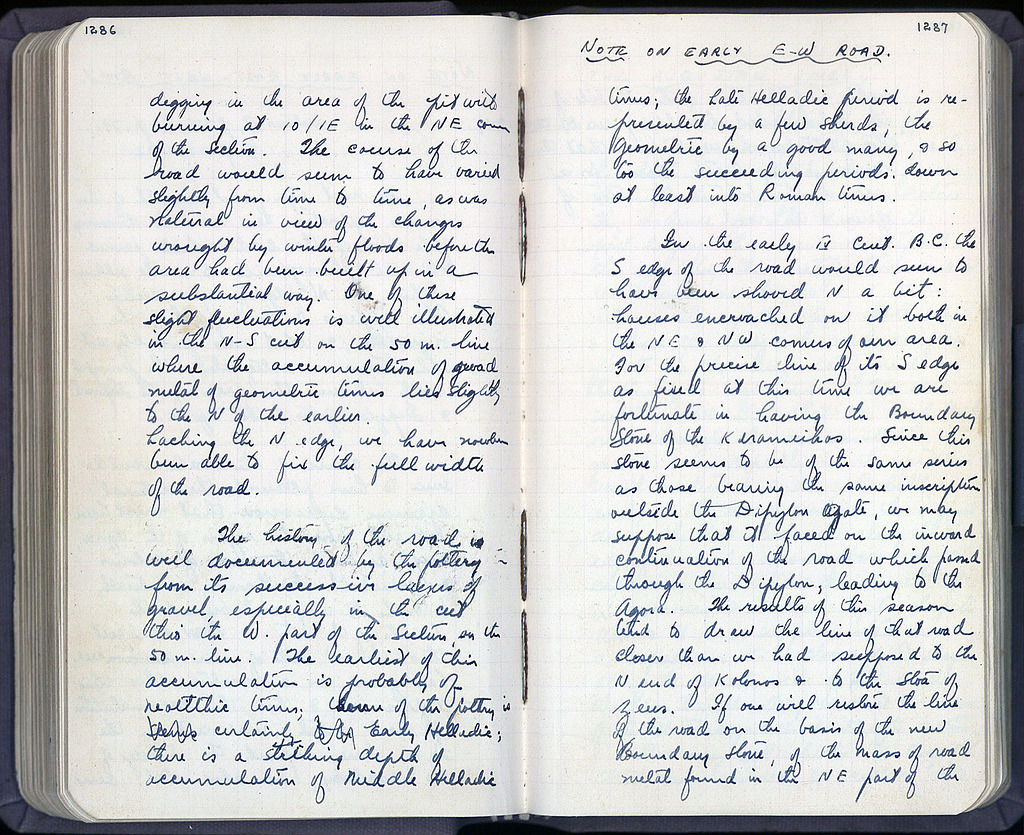 1286
digging in the area of the pit with
burning at 10/IE in the NE corn
of the Section. The course of the
road would seem to have varied
slightly from time to time, as was
natural in view of the changes
wrought by winter floods before the
area had been built up in a
substantial way. One of these
slight fluctuations is well illustrated
in the N-S cut on the 50 m. line
where the accumulation of road
metal of geometric times lies slightly
to the N of the earlier.
Lacking the N. edge, we have nowhere
been able to fix the full width
of the road.
The history of the road is
well documented by the pottery
from its successive layers of
gravel, especially in the cut
thro the W. part of the Section on the
50 m. line. The earliest of this
accumulation is probably of
neolithic times; some of the pottery is
certainly Early Helladic;
there is a striking depth of
accumulation of Middle Helladic
1287
NOTE ON EARLY E-W ROAD.
times; the Late Helladic period is re-
presented by a few sherds, the
Geometric by a good many, & so
too the succeeding periods down
at least into Roman times.
For the early IV cent. B.C. the
S edge of the road would seem to
have been shoved N a bit:
houses encroached on it both in
the NE & NW corners of our area.
For the precise line of its S edge
as fixed at this time we are
fortunate in having the Boundary
Stone of the Kerameikos. Since this
stone seems to be of the same series
as those bearing the same inscription
outside the Dipylon gate, we may
suppose that it faced on the inward
continuation of the road which passed
through the Dipylon, leading to the
Agora. The results of this season
tend to draw the line of that road
closer than we had supposed to the
N end of Kolonos & to the Stoa of
Zeus. If one will restore the line
of the road on the basis of the new
Boundary Stone, of the mass of road
metal found in the NE part of the